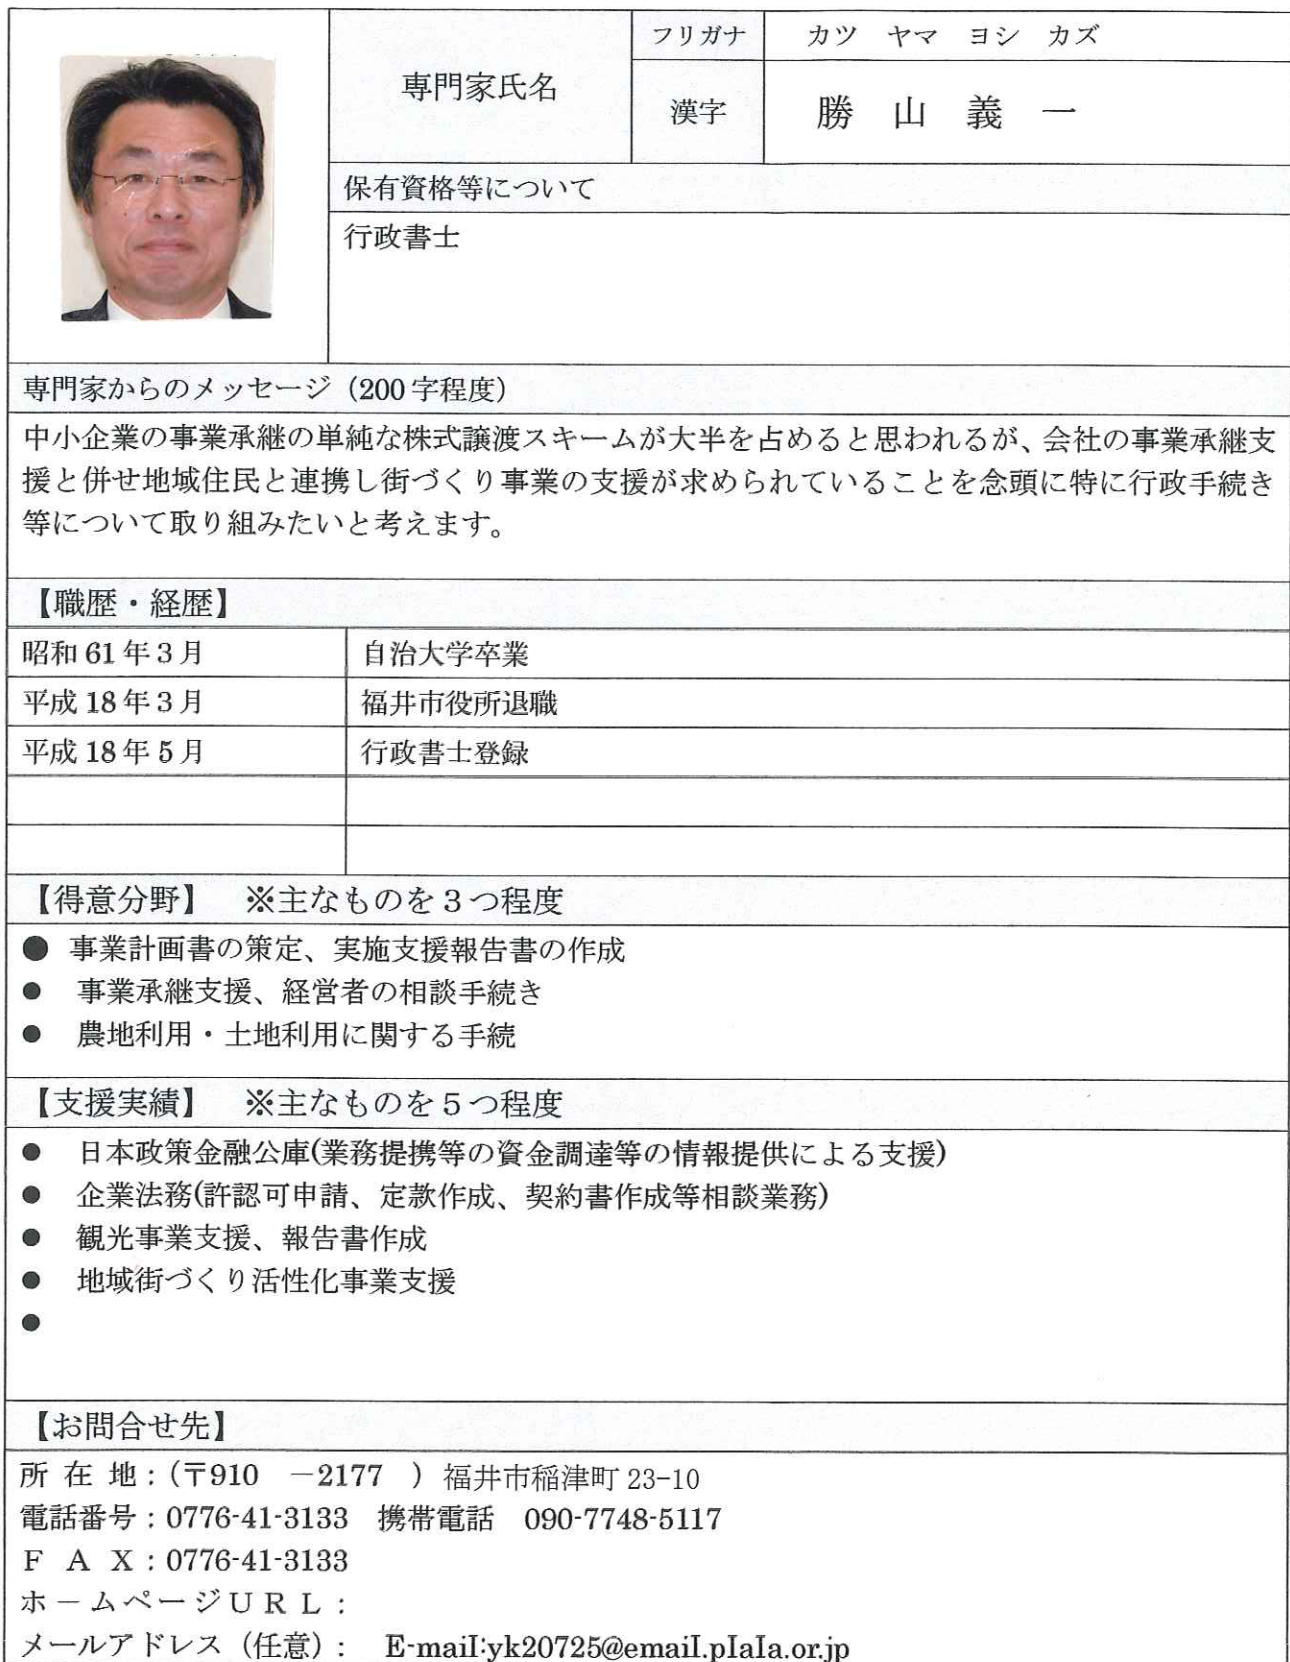 フリガナ　カツ　ヤマ　ヨシ　カズ
専門家氏名
漢字　勝　山　義　一
保有資格等について
行政書士
専門家からのメッセージ（200字程度）
中小企業の事業承継の単純な株式譲渡スキームが大半を占めると思われるが、会社の事業承継支
援と併せ地域住民と連携し街づくり事業の支援が求められていることを念頭に特に行政手続き
等について取り組みたいと考えます。
【職歴・経歴】
昭和61年3月　自治大学卒業
平成18年3月　福井市役所退職
平成18年5月　行政書士登録
【得意分野】　※主なものを３つ程度
● 事業計画書の策定、実施支援報告書の作成
● 事業承継支援、経営者の相談手続き
● 農地利用・土地利用に関する手続
【支援実績】　※主なものを５つ程度
● 日本政策金融公庫(業務提携等の資金調達等の情報提供による支援)
● 企業法務(許認可申請、定款作成、契約書作成等相談業務)
● 観光事業支援、報告書作成
● 地域街づくり活性化事業支援
●
【お問合せ先】
所 在 地：(〒910　－2177　) 福井市稲津町 23-10
電話番号：0776-41-3133　携帯電話　090-7748-5117
Ｆ Ａ Ｘ：0776-41-3133
ホームページＵＲＬ：
メールアドレス（任意）：　E-maiI:yk20725@emaiI.pIaIa.or.jp